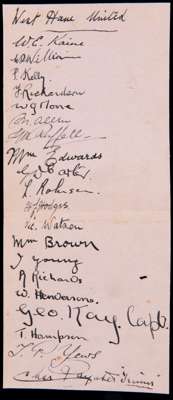 West Ham United
W.E. Kaine
P. Kelly
J Richardson
P. Allen
Wm Edwards
L Robinson
W. Watson
Wm Brown
J Young
A Richards
W. Henderson.
Geo. Kay. Capt.
T. Hampson
T. R. Yews
Chas Paynter Trainer